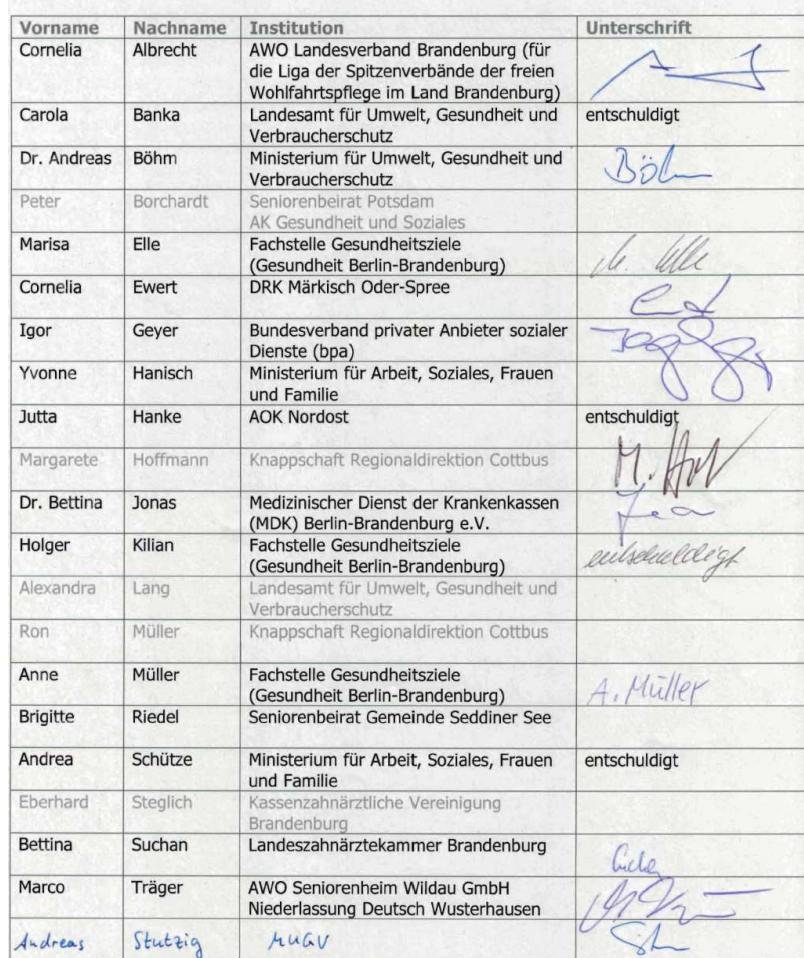 Vorname Nachname Institution Unterschrift
Cornelia Albrecht AWO Landesverband Brandenburg (für
die Liga der Spitzenverbände der freien
Wohlfahrtspflege im Land Brandenburg)
Carola Banka Landesamt für Umwelt, Gesundheit und entschuldigt
Verbraucherschutz
Dr. Andreas Böhm Ministerium für Umwelt, Gesundheit und
Verbraucherschutz Böhm
Peter Borchardt Seniorenbeirat Potsdam
AK Gesundheit und Soziales
Marisa Elle Fachstelle Gesundheitsziele
(Gesundheit Berlin-Brandenburg) M. Elle
Cornelia Ewert DRK Märkisch Oder-Spree
Igor Geyer Bundesverband privater Anbieter sozialer
Dienste (bpa)
Yvonne Hanisch Ministerium für Arbeit, Soziales, Frauen
und Familie
Jutta Hanke AOK Nordost entschuldigt
Margarete Hoffmann Knappschaft Regionaldirektion Cottbus
Dr. Bettina Jonas Medizinischer Dienst der Krankenkassen
(MDK) Berlin-Brandenburg e.V.
Holger Kilian Fachstelle Gesundheitsziele entschuldigt
(Gesundheit Berlin-Brandenburg)
Alexandra Lang Landesamt für Umwelt, Gesundheit und
Verbraucherschutz
Ron Müller Knappschaft Regionaldirektion Cottbus
Anne Müller Fachstelle Gesundheitsziele
(Gesundheit Berlin-Brandenburg) A. Müller
Brigitte Riedel Seniorenbeirat Gemeinde Seddiner See
Andrea Schütze Ministerium für Arbeit, Soziales, Frauen entschuldigt
und Familie
Eberhard Steglich Kassenzahnärztliche Vereinigung
Brandenburg
Bettina Suchan Landeszahnärztekammer Brandenburg
Marco Träger AWO Seniorenheim Wildau GmbH
Niederlassung Deutsch Wusterhausen
Andreas Stutzig MUGV